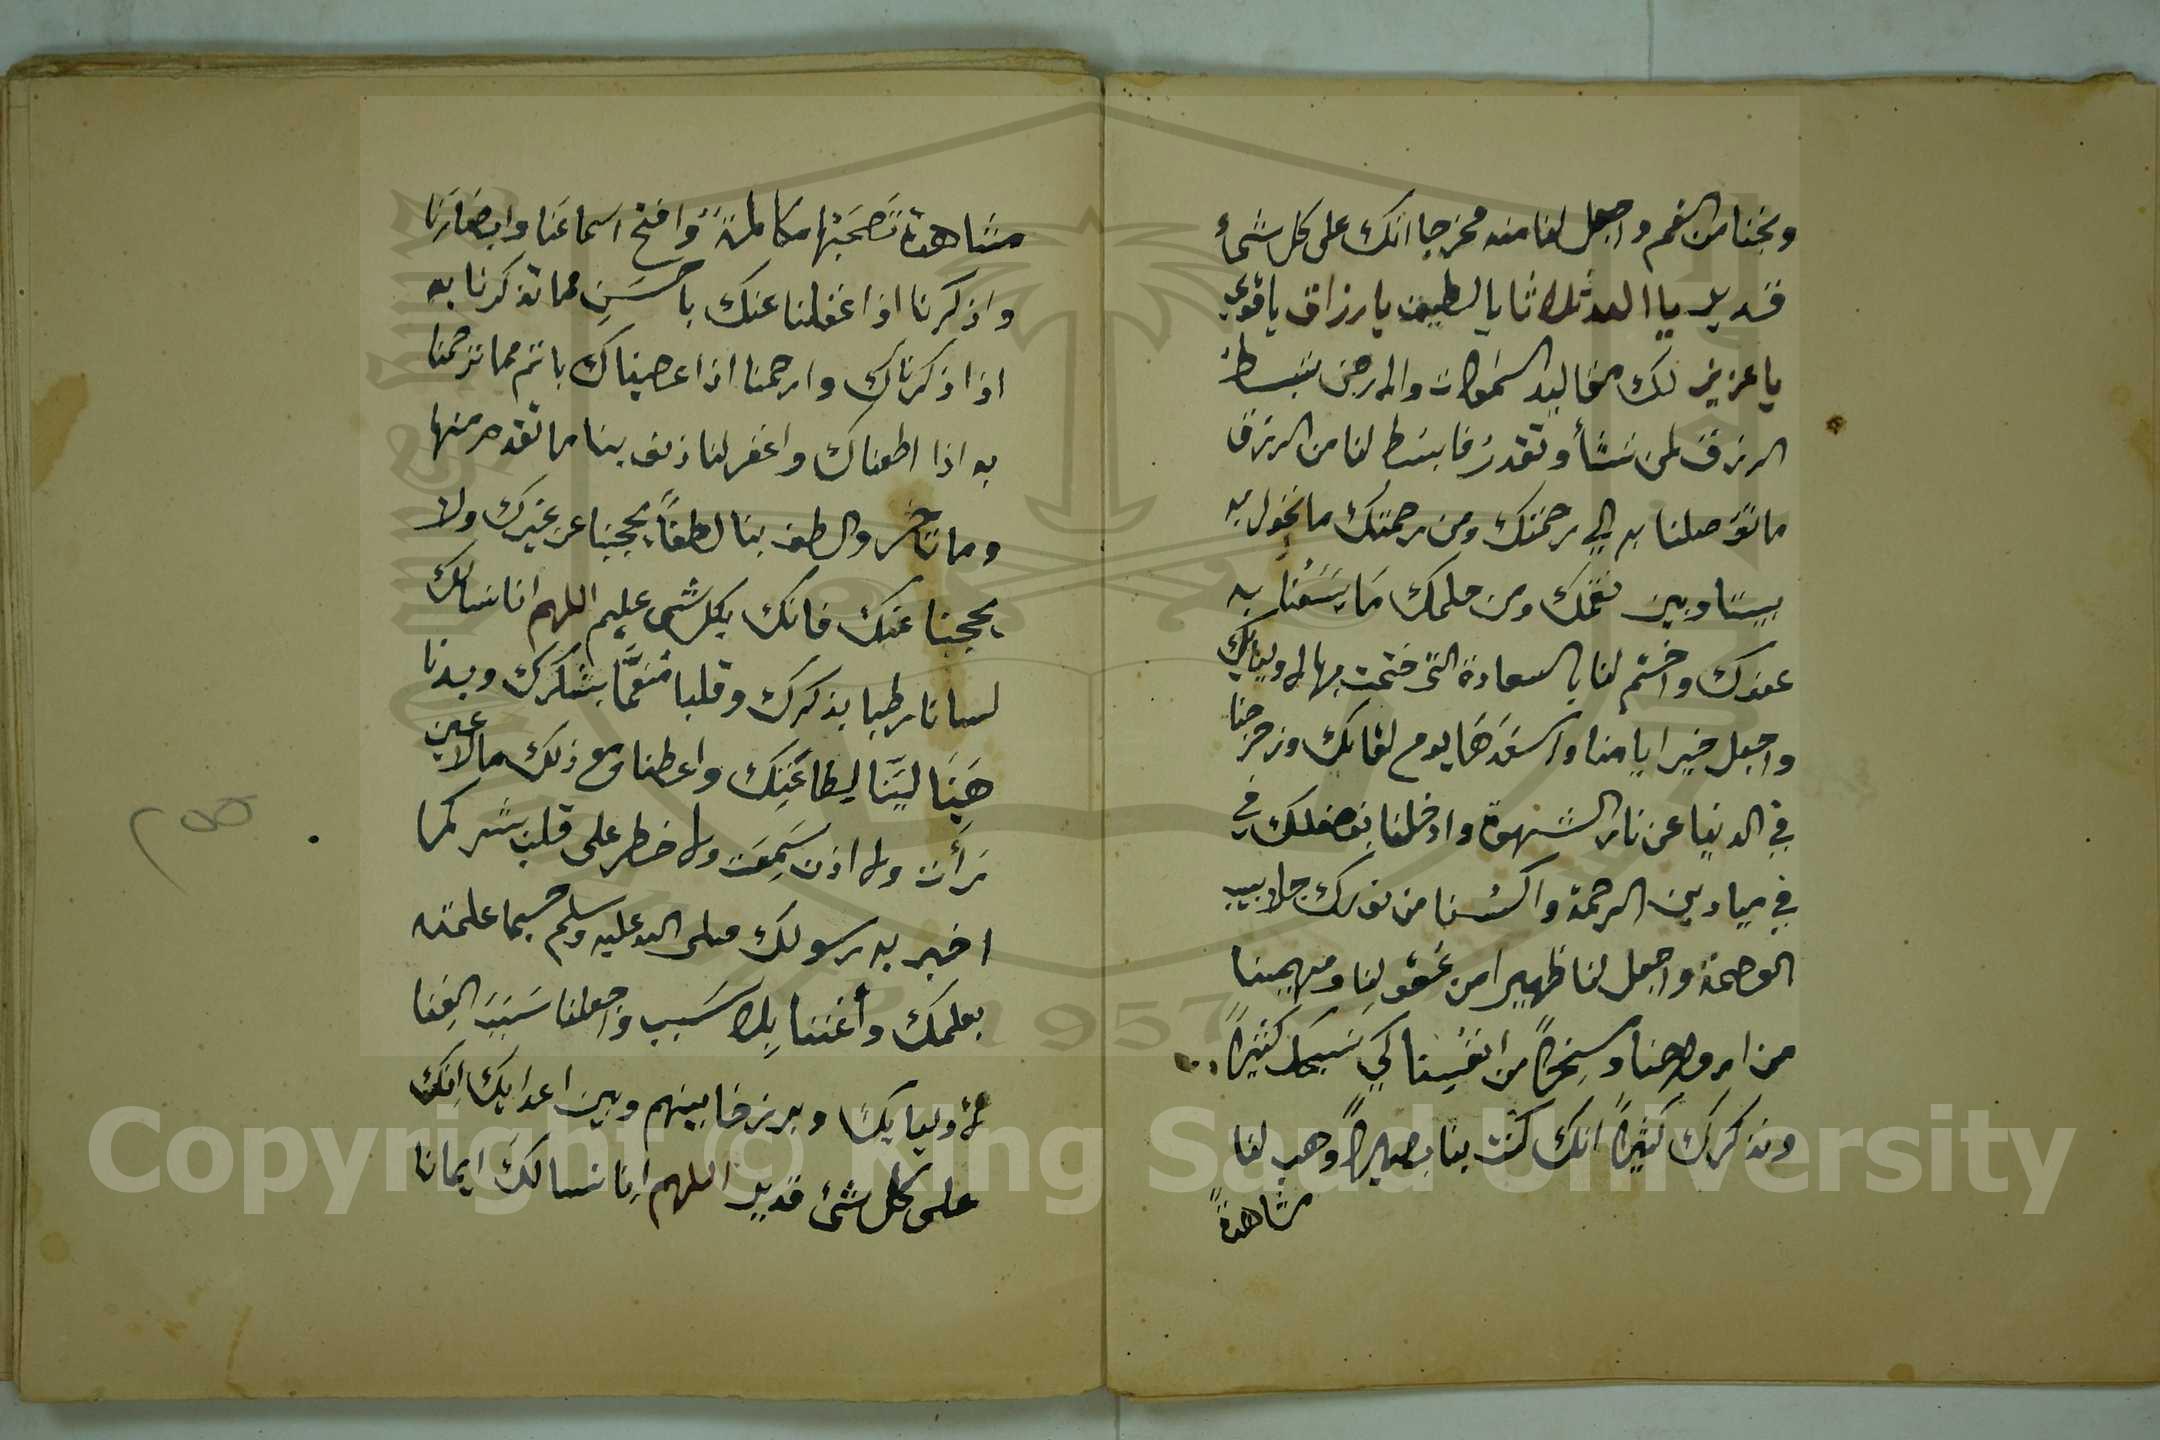 ونجنا من الغم واجعل لنا منه مخرجا انك على كل شئ
قدير يا الله ثلاثا يا لطيف يا رزاق يا قوي
يا عزيز لك مقاليد السموات والارض تبسط
الرزق لمن تشأ وتقدر فابسط لنا من الرزق
ما توصلنا به الي رحمتك ومن رحمتك ما تحول به
بيننا وبين نقمك ومن حلمك ما يسعنا به
عفوك واختم لنا بالسعادة التي ختمت بها لاوليائك
واجعل خير ايامنا واسعدها يوم لقائك وزحزحنا
في الدنيا عن نار الشهوة وادخلنا بفضلك في
في ميادين الرحمة واكسنا من نورك جلابيب
العصمة واجعل لنا ظهيرا من عقولنا ومهيمنا
من ارواحنا ومسخرا من انفسنا كي نسبحك كثيرا
ونذكرك كثيرا انك كنت بنا بصيرا وهب لنا
مشاهدة
مشاهدة تصحبها مكالمة وافتح اسماعنا وابصارنا
واذكرنا اذا غفلنا عنك باحسن مما تذكرنا به
اذا ذكرناك وارحمنا اذا عصيناك باتم مما ترحمنا
به اذا اطعناك واغفر لنا ذنوبنا ما تقدم منها
وما تاخر والطف بنا لطفا يحجبنا عن غيرك ولا
يحجبنا عنك فانك بكل شي عليم اللهم انا نسالك
لسانا رطبا بذكرك وقلبا منعما بشكرك وبدنا
هينا لينا لطاعتك واعطنا مع ذلك ما لا عين
رأت ولا اذن سمعت ولا خطر على قلب بشر كما
اخبر به رسولك صلى الله عليه وسلم حسبما علمته
بعلمك وأغننا بلا سبب واجعلنا سبب الغنا
لاوليائك وبرزخا بينهم وبين اعدايك انك
على كل شئ قدير اللهم انا نسالك ايمانا
Copyright © King Saud University
1957